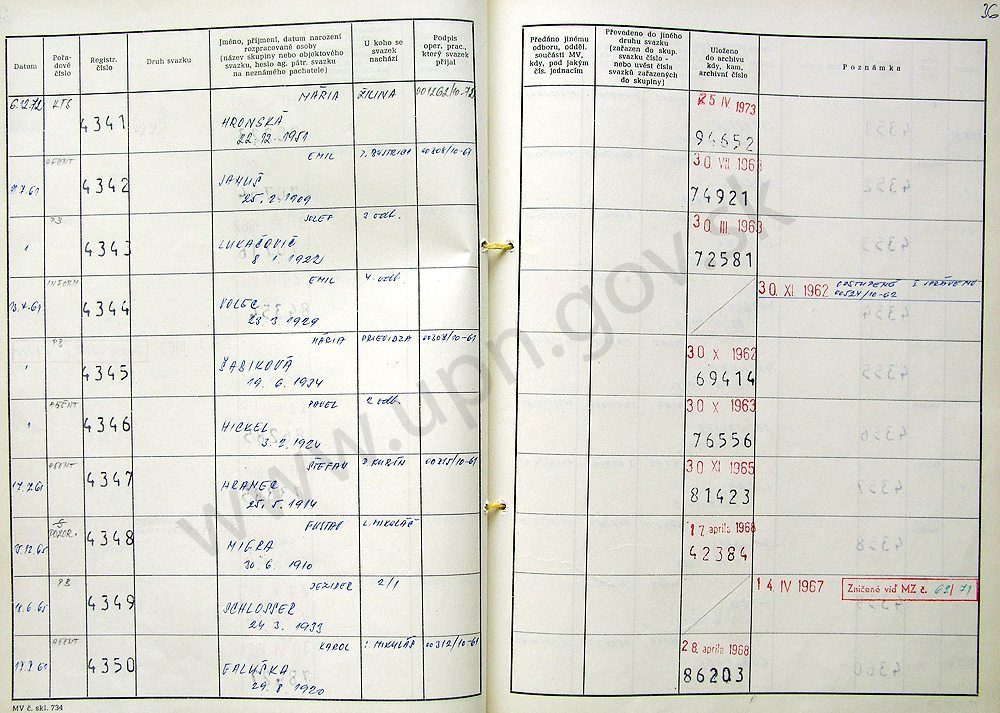 36
Datum
Pořadové číslo
Registr. číslo
Druh svazku
Jméno, příjmení, datum narození
rozpracované osoby
(název skupiny nebo objektového
svazku, heslo ag. pátr. svazku
na neznámého pachatele)
U koho se
svazek
nachází
Podpis
oper. prac.,
který svazek
přijal
Předáno jinému
odboru, odděl.
součásti MV,
kdy, pod jakým
čís. jednacím
Převedeno do jiného
druhu svazku
(zařazen do skup.
svazku číslo -
nebo uvést čísla
svazků zařazených
do skupiny)
Uloženo
do archivu
kdy, kam,
archivní číslo
Poznámka
6.12.72 KTS MÁRIA ŽILINA
4341 HRONSKÁ
22.12.1951
25 IV 1973
94652
AGENT EMIL 00808/10-61
4342 JANUŠ
25. 2. 1909
30 VII 1963
74921
PB JOZEF 2 odb.
4343 LUKAČOVIČ
8 1 1922
30 III 1963
72581
INFORM EMIL 4. odb.
4344 VOLEC
23. 3 1929
30. XI. 1962 ODSTÚPENÉ I SPRÁVE MV
00524/10-62
PB MÁRIA PRIEVIDZA 00808/10-61
4345 ŠABIKOVÁ
19. 6. 1934
30 X 1962
69414
AGENT PAVEL 2 odb.
4346 HICKEL
3. 2. 1924
30 X 1963
76556
17.7.61 AGENT ŠTEFAN D. KUBÍN 00815/10-61
4347 HRAMER
25. 5. 1914
30 XI 1965
81423
S
POZOR. GUSTAV L. MIKULÁŠ
4348 MIGRA
30. 6 1910
17. apríla 1968
42384
PB DEZIDER 2/1
4349 SCHLOSSER
24. 3. 1933
14. IV 1967 Zničené viď MZ č. 62/71
AGENT KAROL L. MIKULÁŠ 00312/10-61
4350 GALUŠKA
29. 8 1920
28. apríla 1968
86203
MV č. skl. 734
www.upn.gov.sk